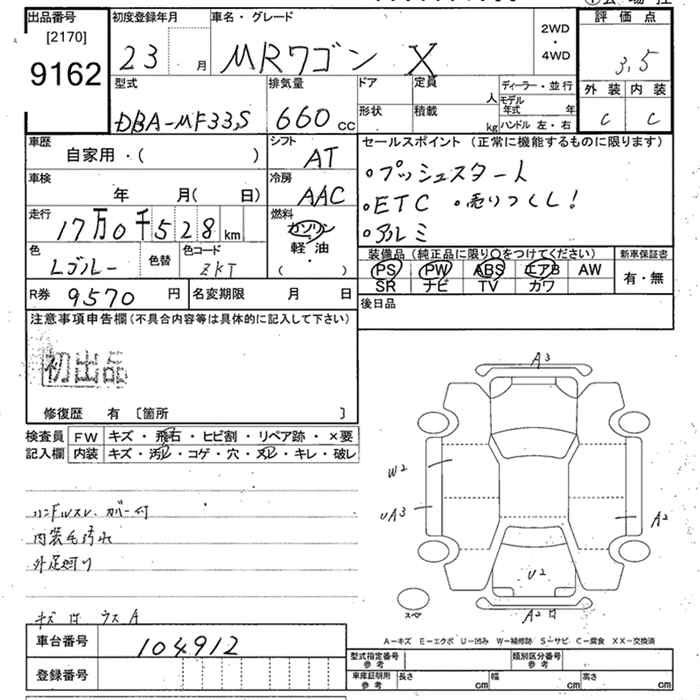 出品番号
[2170]
9162
初度登録年月
23 月
車名・グレード
MRワゴン X
2WD
・
4WD
評価点
3.5
外装 内装
C C
型式
DBA-MF33S
排気量
660 CC
ドア
形状
定員 人
積載 kg
ディーラー・並行
モデル年式 年
ハンドル 左・右
車歴
自家用・( )
シフト
AT
セールスポイント (正常に機能するものに限ります)
・プッシュスタート
・ETC ・売りつくし!
・アルミ
車検
年 月( 日)
冷房
AAC
走行
17万0千528 km
燃料
ガソリン
軽・油
( )
色
Lブルー
色替
色コード
ZKT
装備品 (純正品に限り○をつけてください)
PS PW ABS エアB AW
SR ナビ TV カワ
新車保証書
有・無
R券 9570 円
名変期限 月 日
後日品
注意事項申告欄(不具合内容等は具体的に記入して下さい)
初出品
修復歴 有 [箇所 ]
検査員
記入欄
FW キズ・飛石・ヒビ割・リペア跡・×要
内装 キズ・汚レ・コゲ・穴・ヌレ・キレ・破レ
ハンドルスレ カバー付
内装毛汚れ
外足廻り
キズ
ウスA
A3
W2
UA3
A2
U2
A2
スペア
A-キズ E-エクボ U-凹み W-補修跡 S-サビ C-腐食 XX-交換済
車台番号
104912
登録番号
型式指定番号
参考
類別区分番号
参考
車庫証明用
参考
長さ cm
幅 cm
高さ cm